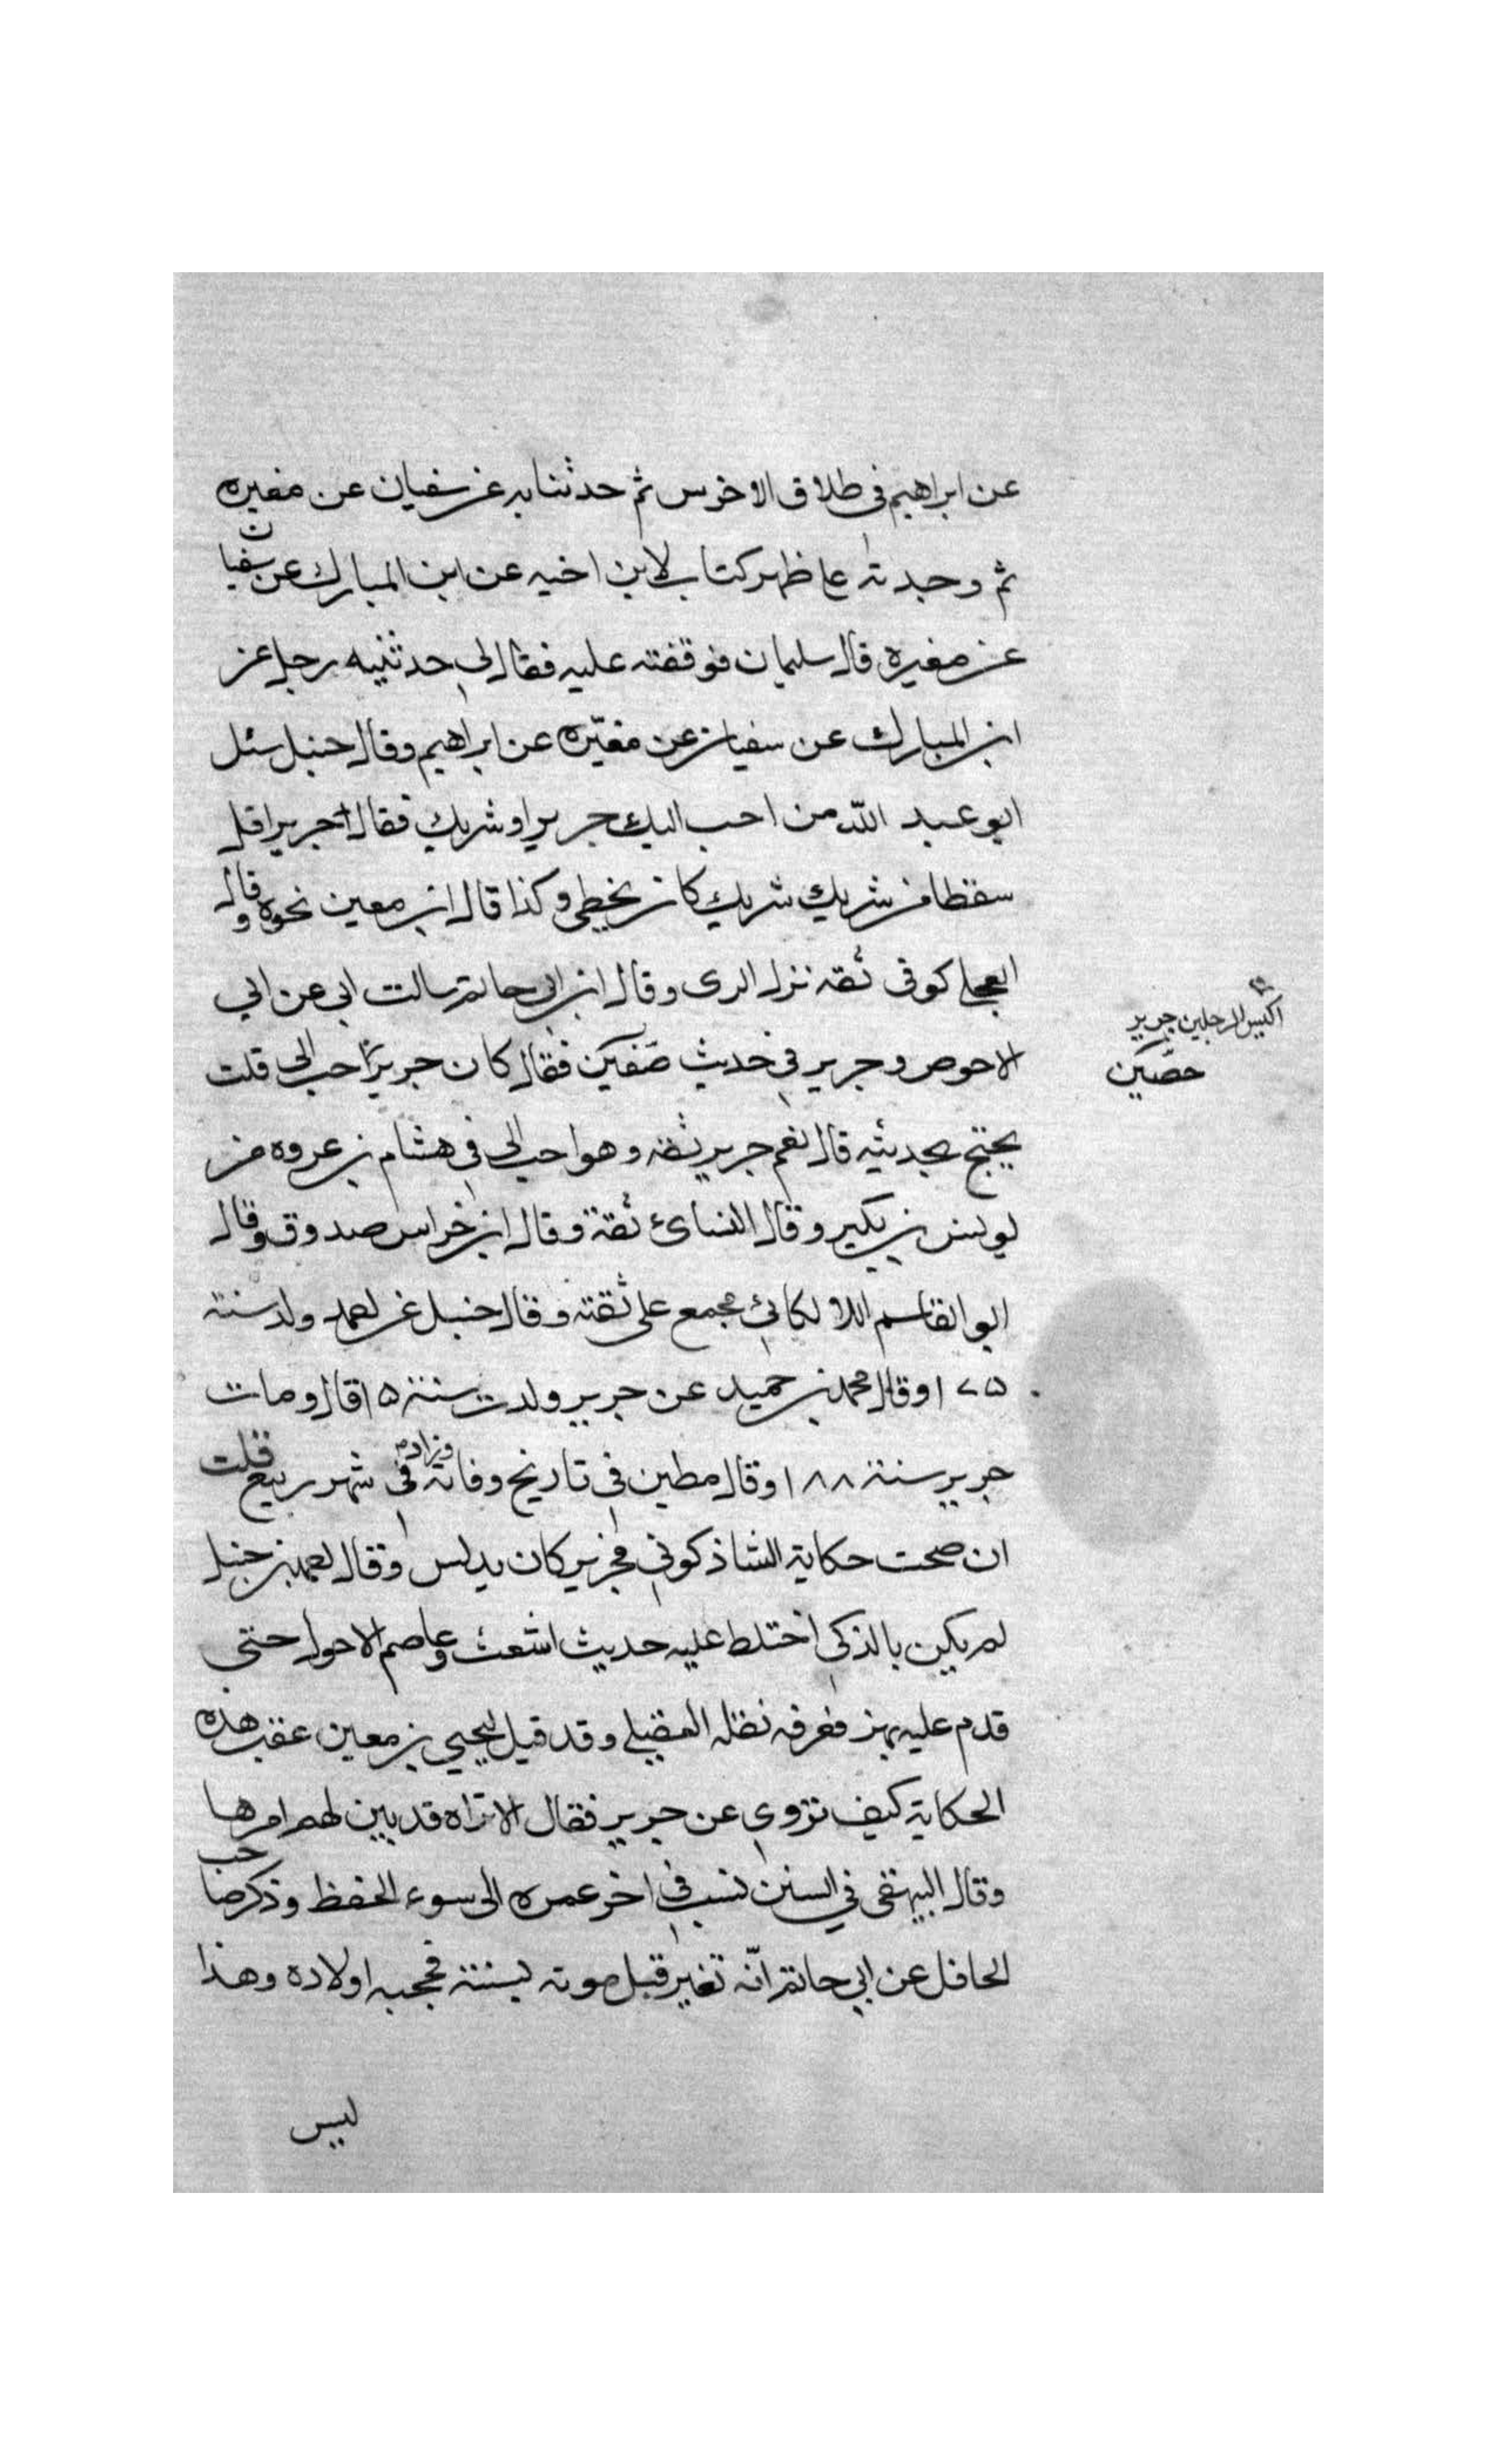 عن ابراهيم فى طلاق الاخرس ثم حدثنا به عن سفيان عن مغيره
ثم وجدته على ظهر كتاب لابن اخيه عن ابن المبارك عن سفيان
عن مغيره قال سليمان فوقفته عليه فقال لي حدثنيه رجل عن
ابن المبارك عن سفيان عن مغيره عن ابراهيم وقال حنبل سئل
ابو عبد الله من احب اليك جرير او شريك فقال جرير اقل
سقطا من شريك شريك كان يخطي وكذا قال ابن معين نحوه وقال
العجلي كوفى ثقه نزل الرى وقال ابن ابي حاتم سالت ابي عن ابي
الاحوص وجرير في حديث حصين فقال كان جرير احب الي قلت
يحتج بحديثه قال نعم جرير ثقه وهو احب الي في هشام بن عروه من
يونس بن بكير وقال النسائ ثقة وقال ابن خراس صدوق وقال
ابو القاسم اللالكائي مجمع على ثقته وقال حنبل عن احمد ولد سنة
١٧٥ وقال محمد بن حميد عن جرير ولدت سنة ١٥ قال ومات
جرير سنة ١٨٨ وقال مطين في تاريخ وفاته وزاد في شهر ربيع قلت
ان صحت حكاية الشاذكوني فجرير كان يدلس وقال احمد بن حنبل
لم يكن بالذكى اختلط عليه حديث اشعث وعاصم الاحول حتى
قدم عليه بهز فعرفه نقله العقيلي وقد قيل ليحيي بن معين عقب هذه
الحكاية كيف تروي عن جرير فقال الا تراه قد بين لهم امرها
وقال البيهقى في السنن نسب في اخر عمره الى سوء الحفظ وذكر صاحب
الحافل عن ابي حاتم انّه تغير قبل موته بسنة فحجبه اولاده وهذا
ليس
اكيس الرجلين جرير
حصين